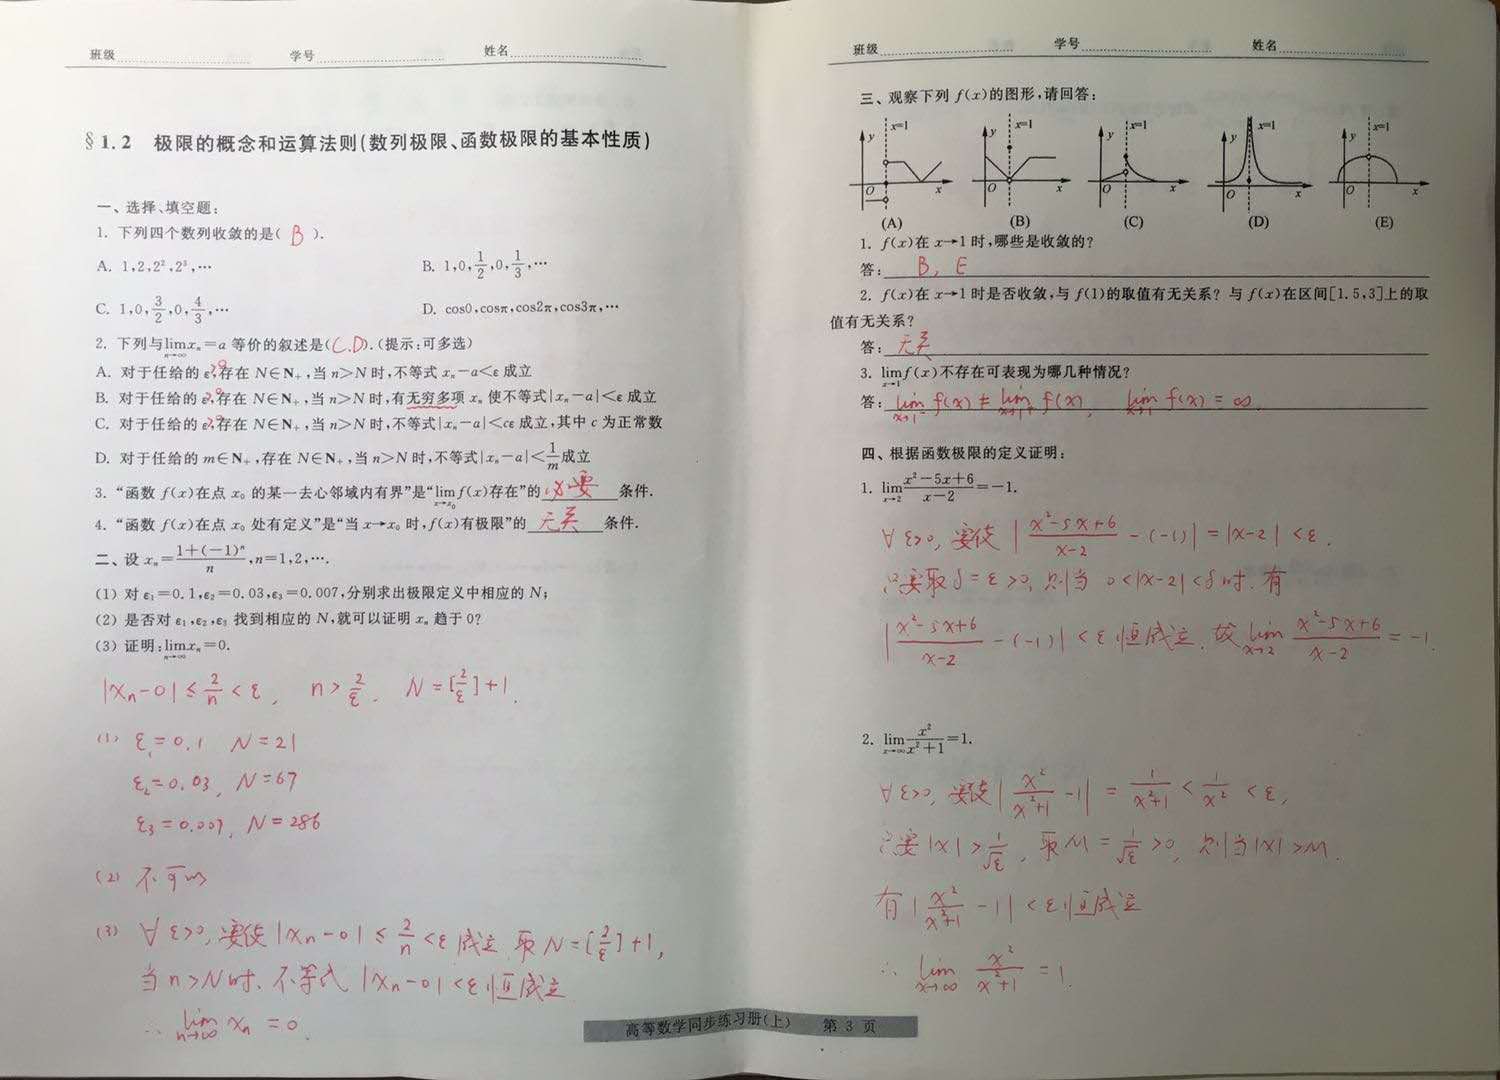 班级 学号 姓名
§1.2 极限的概念和运算法则(数列极限、函数极限的基本性质)
一、选择、填空题:
1. 下列四个数列收敛的是( B ).
A. 1,2,2²,2³,⋯ B. 1,0,1/2,0,1/3,⋯
C. 1,0,3/2,0,4/3,⋯ D. cos0,cosπ,cos2π,cos3π,⋯
2. 下列与lim(n→∞) xₙ=a 等价的叙述是(C.D).(提示:可多选)
A. 对于任给的 ε>0,存在 N∈N₊,当 n>N 时,不等式 xₙ-a<ε 成立
B. 对于任给的 ε>0,存在 N∈N₊,当 n>N 时,有无穷多项 xₙ 使不等式|xₙ-a|<ε 成立
C. 对于任给的 ε>0,存在 N∈N₊,当 n>N 时,不等式|xₙ-a|<cε 成立,其中 c 为正常数
D. 对于任给的 m∈N₊,存在 N∈N₊,当 n>N 时,不等式|xₙ-a|<1/m 成立
3. “函数 f(x)在点 x₀ 的某一去心邻域内有界”是“lim(x→x₀) f(x)存在”的 必要 条件.
4. “函数 f(x)在点 x₀ 处有定义”是“当 x→x₀ 时,f(x)有极限”的 无关 条件.
二、设 xₙ=(1+(-1)ⁿ)/n,n=1,2,⋯.
(1) 对 ε₁=0.1,ε₂=0.03,ε₃=0.007,分别求出极限定义中相应的 N;
(2) 是否对 ε₁,ε₂,ε₃ 找到相应的 N,就可以证明 xₙ 趋于 0?
(3) 证明:lim(n→∞) xₙ=0.
|xₙ-0| ≤ 2/n < ε, n > 2/ε. N=[2/ε]+1.
(1) ε₁=0.1 N=21
ε₂=0.03, N=67
ε₃=0.007, N=286
(2) 不可以
(3) ∀ε>0, 要使|xₙ-0| ≤ 2/n <ε成立, 取N=[2/ε]+1,
当n>N时, 不等式|xₙ-0|<ε恒成立
∴ lim(n→∞) xₙ = 0.
班级 学号 姓名
三、观察下列 f(x)的图形,请回答:
x=1 x=1 x=1 x=1 x=1
y y y y y
O x O x O x O x O x
(A) (B) (C) (D) (E)
1. f(x)在 x→1 时,哪些是收敛的?
答: B, E
2. f(x)在 x→1 时是否收敛,与 f(1)的取值有无关系? 与 f(x)在区间[1.5,3]上的取
值有无关系?
答: 无关
3. lim(x→1) f(x)不存在可表现为哪几种情况?
答: lim(x→1⁻) f(x) ≠ lim(x→1⁺) f(x), lim(x→1) f(x) = ∞.
四、根据函数极限的定义证明:
1. lim(x→2) (x²-5x+6)/(x-2)=-1.
∀ε>0, 要使|(x²-5x+6)/(x-2) -(-1)| = |x-2| <ε.
只要取δ=ε>0, 则当 0<|x-2|<δ时. 有
|(x²-5x+6)/(x-2) -(-1)| <ε恒成立. 故 lim(x→2) (x²-5x+6)/(x-2) = -1.
2. lim(x→∞) x²/(x²+1)=1.
∀ε>0, 要使|x²/(x²+1) -1| = 1/(x²+1) < 1/x² <ε,
只要|x|>1/√ε, 取M=1/√ε>0, 则当|x|>M.
有|x²/(x²+1) -1|<ε恒成立
∴ lim(x→∞) x²/(x²+1) = 1.
高等数学同步练习册(上) 第 3 页